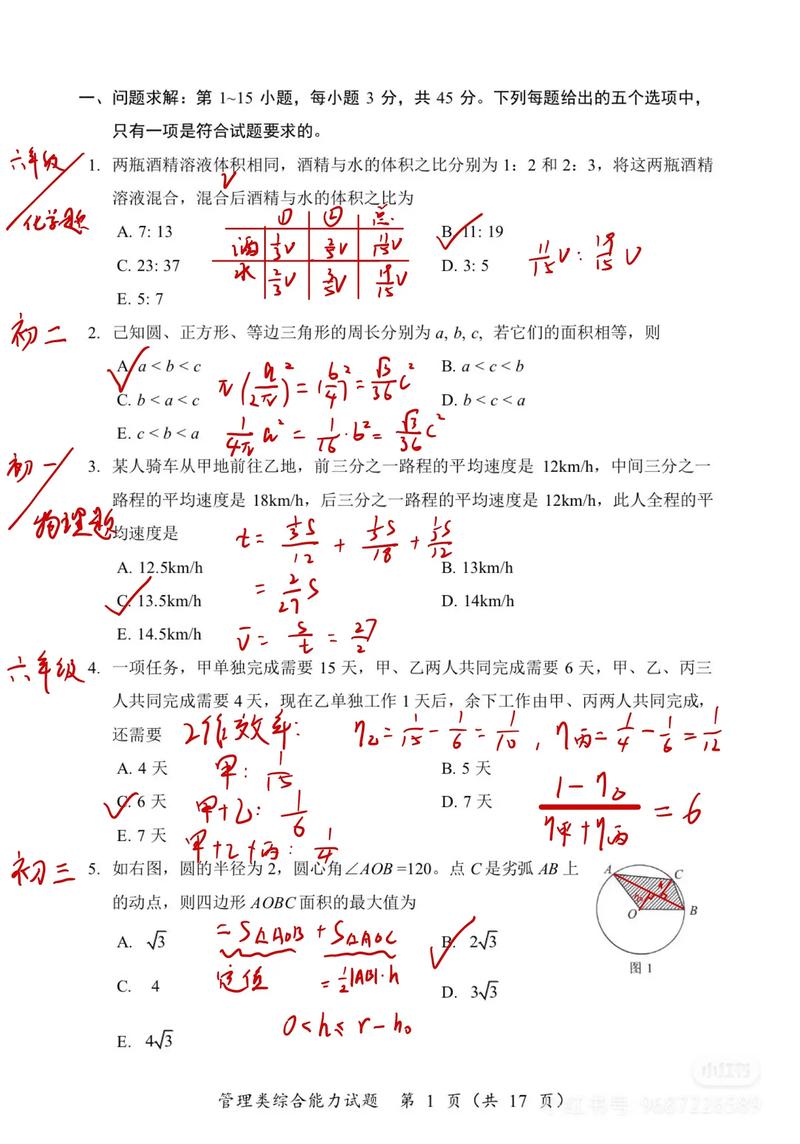 一、问题求解：第 1~15 小题，每小题 3 分，共 45 分。下列每题给出的五个选项中，
只有一项是符合试题要求的。
六年级/化学题
1. 两瓶酒精溶液体积相同，酒精与水的体积之比分别为 1：2 和 2：3，将这两瓶酒精
V
溶液混合，混合后酒精与水的体积之比为
① ② 总
A. 7: 13
B. 11: 19
酒 1/3V 2/5V 11/15V
水 2/3V 3/5V 19/15V
11/15 V : 19/15 V
C. 23: 37
D. 3: 5
E. 5: 7
初二
2. 己知圆、正方形、等边三角形的周长分别为 a, b, c, 若它们的面积相等，则
A. a < b < c
B. a < c < b
π(a/2π)² = (b/4)² = √3/36 c²
C. b < a < c
D. b < c < a
E. c < b < a
1/4π a² = 1/16 · b² = √3/36 c²
初一/物理题
3. 某人骑车从甲地前往乙地，前三分之一路程的平均速度是 12km/h，中间三分之一
路程的平均速度是 18km/h，后三分之一路程的平均速度是 12km/h，此人全程的平
均速度是
t = 1/3S/12 + 1/3S/18 + 1/3S/12
A. 12.5km/h
B. 13km/h
= 2/27 S
C. 13.5km/h
D. 14km/h
E. 14.5km/h
v̄ = S/t = 27/2
六年级
4. 一项任务，甲单独完成需要 15 天，甲、乙两人共同完成需要 6 天，甲、乙、丙三
人共同完成需要 4 天，现在乙单独工作 1 天后，余下工作由甲、丙两人共同完成，
还需要
工作效率： η乙 = 1/15 - 1/6 = 1/10 , η丙 = 1/4 - 1/6 = 1/12
A. 4 天
B. 5 天
甲: 1/15
C. 6 天
D. 7 天
甲+乙: 1/6
1-η乙/η甲+η丙 = 6
E. 7 天
甲+乙+丙: 1/4
初三
5. 如右图，圆的半径为 2，圆心角∠AOB =120。点 C 是劣弧 AB 上
的动点，则四边形 AOBC 面积的最大值为
A
C
O
B
图 1
= S△AOB + S△AOC
A. √3
B. 2√3
定值 = 1/2|AB|·h
C. 4
D. 3√3
0<h≤r-h₀
E. 4√3
管理类综合能力试题 第 1 页（共 17 页）
小红书
小红书号: 9687226589